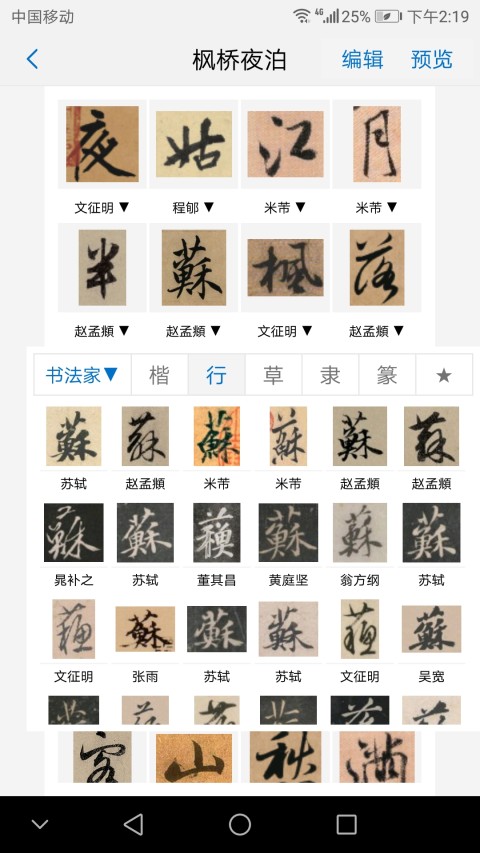 中国移动 4G 25% 下午2:19
枫桥夜泊 编辑 预览
夜 姑 江 月
文征明▼ 程邮▼ 米芾▼ 米芾▼
半 蘇 楓 落
赵孟頫▼ 赵孟頫▼ 文征明▼ 赵孟頫▼
书法家▼ 楷 行 草 隶 篆 ★
蘇 蘇 蘇 蘇 蘇 蘇
苏轼 赵孟頫 米芾 米芾 赵孟頫 赵孟頫
蘇 蘇 蘇 蘇 蘇 蘇
晁补之 苏轼 董其昌 黄庭坚 翁方纲 苏轼
蘇 蘇 蘇 蘇 蘇 蘇
文征明 张雨 苏轼 苏轼 文征明 吴宽
客 山 秋 满